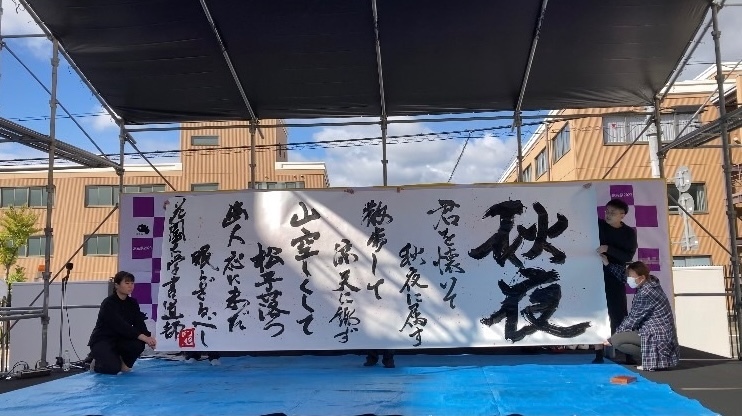 秋夜
君を懐いて
秋夜に属す
散歩して
涼天に詠ず
山空しくして
松子落つ
幽人応に未だ
眠らざるべし
花園大学書道部